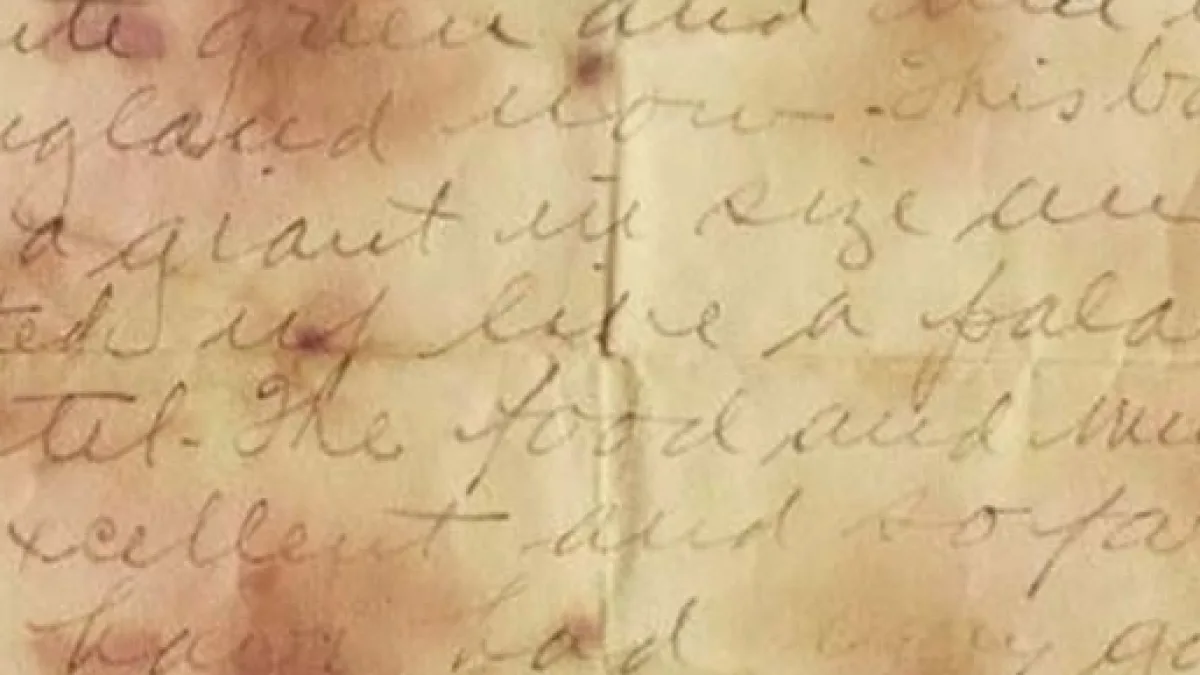 ite green and
ngland now. This bo
a giant in size an
ted up like a pala
tel. The food and mu
xcellent and so far
have had very go